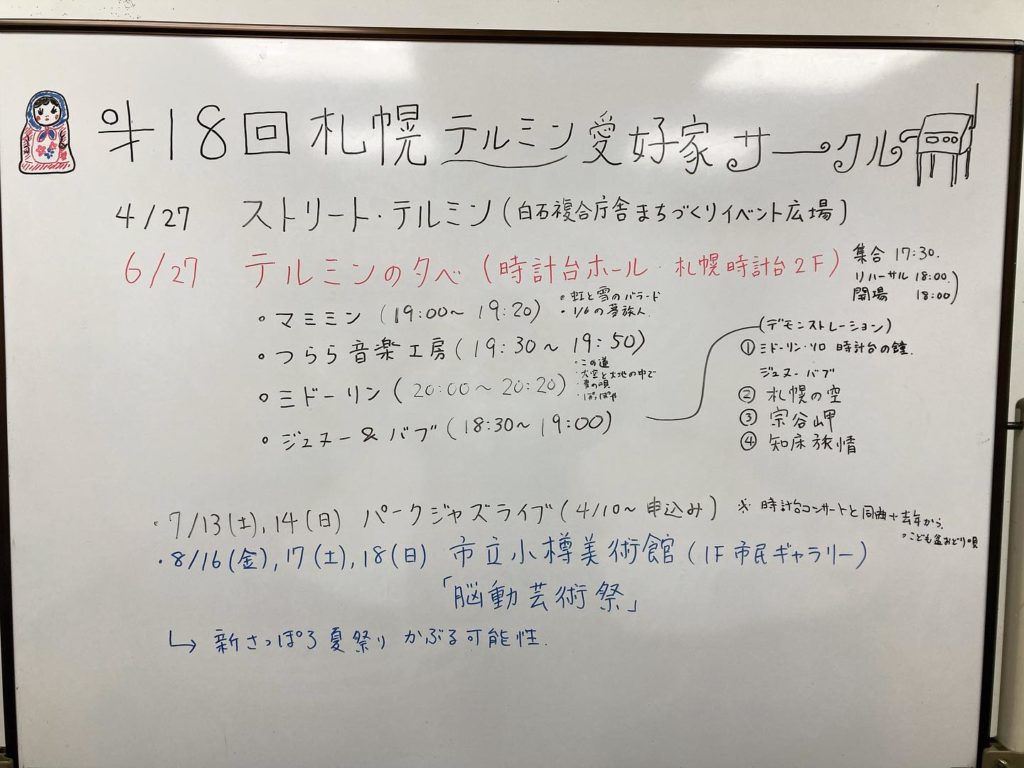 オ18回 札幌テルミン愛好家サークル
4/27 ストリート・テルミン(白石複合庁舎まちづくりイベント広場)
6/27 テルミンの夕べ(時計台ホール・札幌時計台2F)
集合 17:30.
リハーサル 18:00
開場 18:00)
。マミミン (19:00〜19:20)
。虹と雪のバラード
。1/6の夢旅人
。つらら音楽工房(19:30〜19:50)
・この道
・大空と大地の中で
・雪の唄
・ぽっぽや
。ミドーリン(20:00〜20:20)
。ジュヌー&バブ(18:30〜19:00)
(デモンストレーション)
① ミドーリン・ソロ 時計台の鐘.
ジュヌーバブ
② 札幌の空
③ 宗谷岬
④ 知床旅情
・7/13(土),14(日) パークジャズライブ(4/10〜申込み)
※ 時計台コンサートと同曲+去年から.
。こども盆おどり唄
・8/16(金),17(土),18(日) 市立小樽美術館(1F市民ギャラリー)
「脳動芸術祭」
↳ 新さっぽろ夏祭り かぶる可能性.